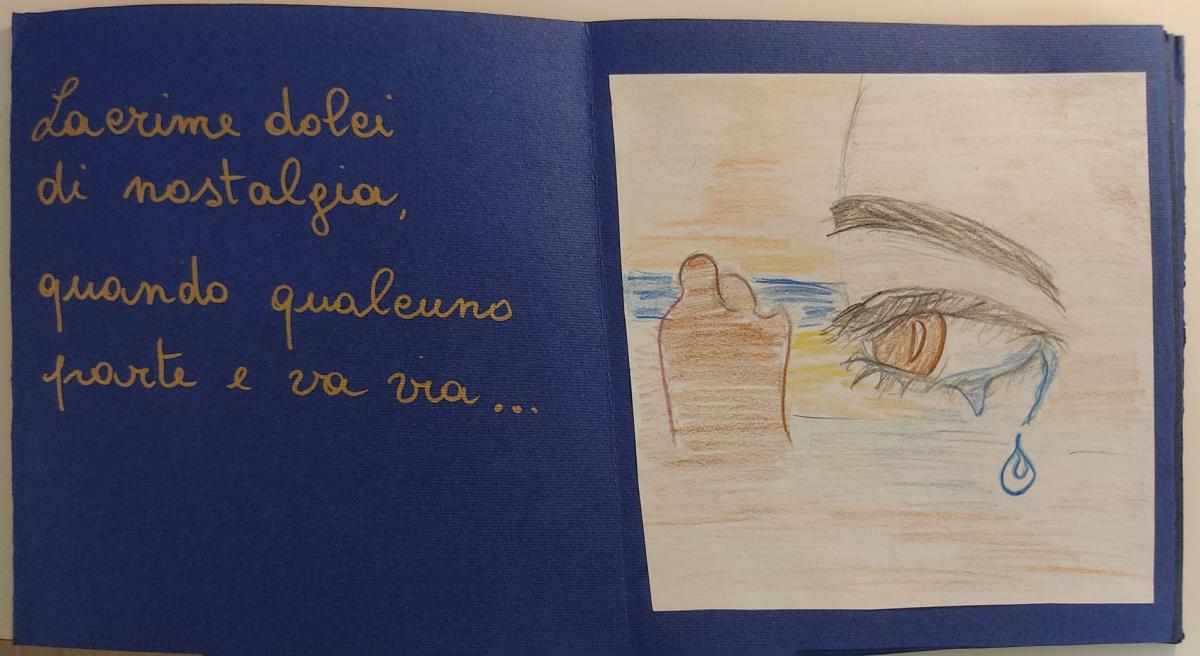 Lacrime dolci
di nostalgia,
quando qualcuno
parte e va via...